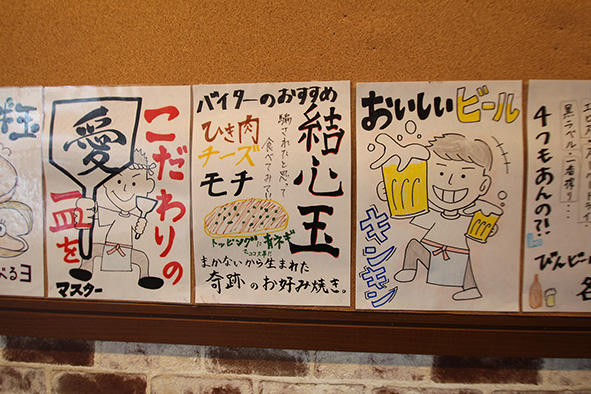 粒
べるヨ
こだわりの
一皿を
愛
マスター
バイターのおすすめ
結心玉
騙されたと思って
食べてみて!!
ひき肉
チーズ
モチ
トッピングに青ネギ
ココ大事!!
まかないから生まれた
奇跡のお好み焼き。
おいしいビール
キンキン
4つもあんの?!
黒ラベル・一番搾り・・・
びんビール
各